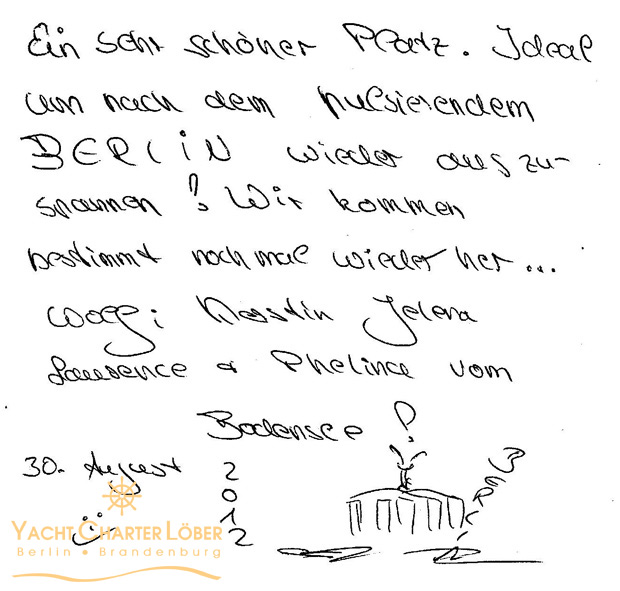 Ein sehr schöner Platz. Ideal
um nach dem pulsierendem
BERLIN wieder auszu-
spannen! Wir kommen
bestimmt nochmal wieder her...
Wolfg; Kerstin Jelena
Laurence & Pheline vom
Bodensee!
30. August 2012
BERLIN
YACHT CHARTER LÖBER
Berlin • Brandenburg